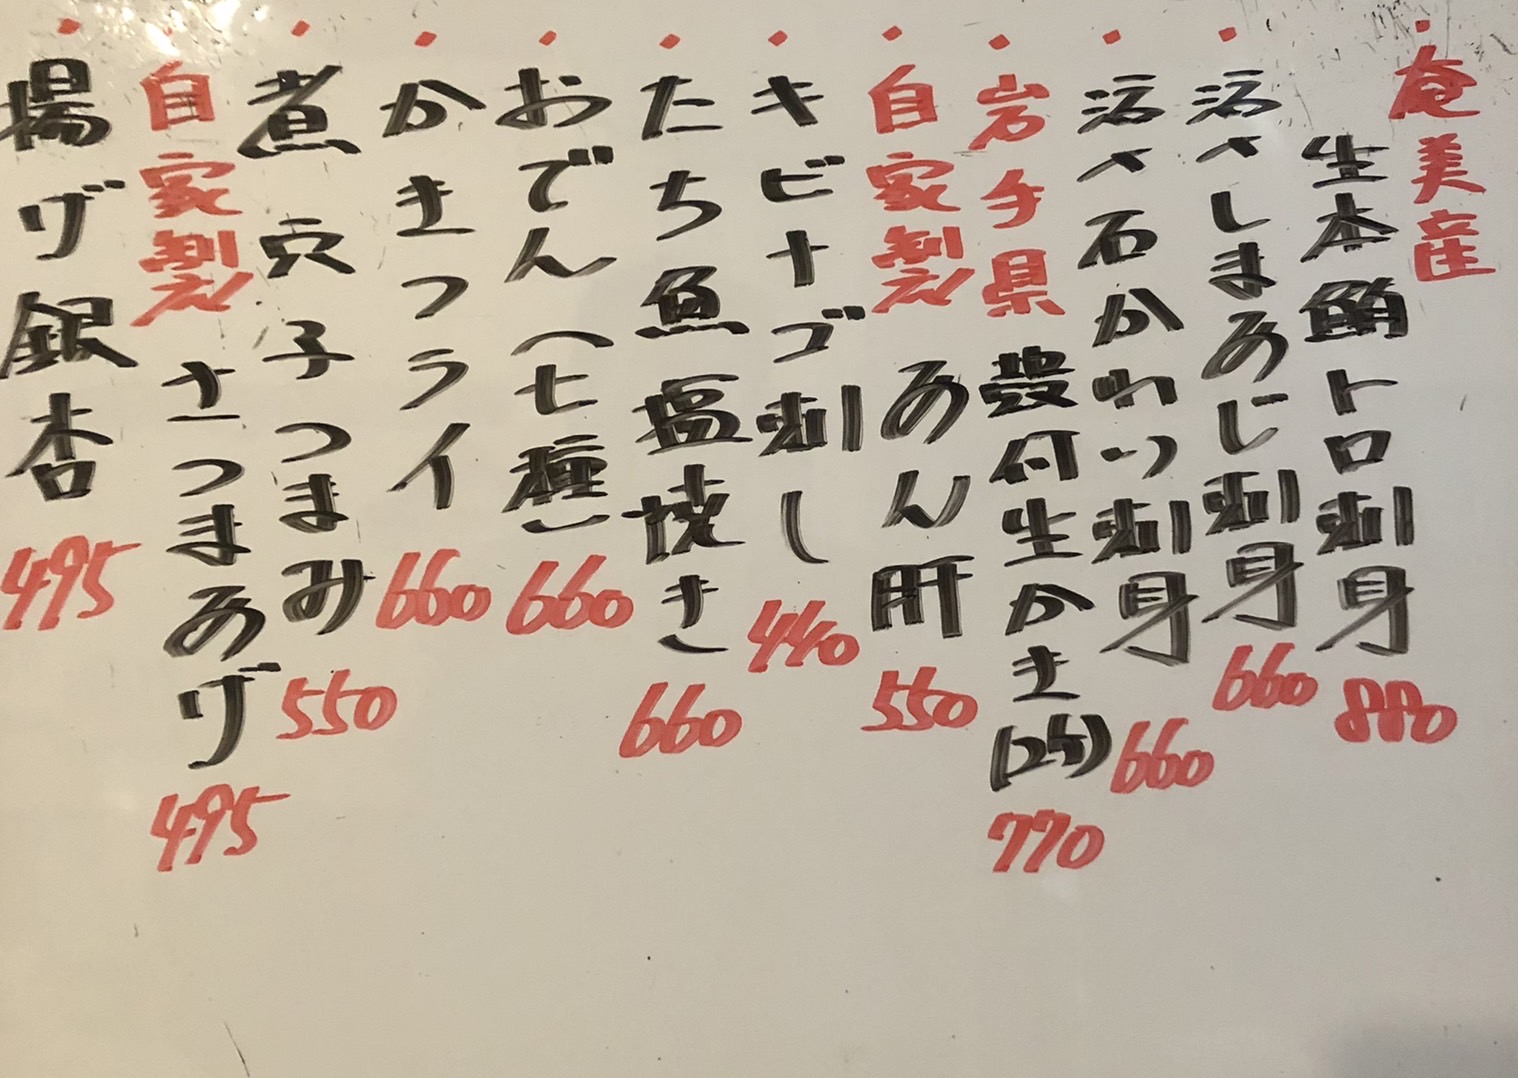 ・奄美産
生本鮪トロ刺身 880
・活〆しまあじ刺身 660
・活〆石かれい刺身 660
・岩手県 殻付生かき(2ケ) 770
・自家製 あん肝 550
・キビナゴ刺し 440
・たち魚塩焼き 660
・おでん(七種) 660
・かきフライ 660
・煮穴子つまみ 550
・自家製 さつまあげ 495
・揚げ銀杏 495